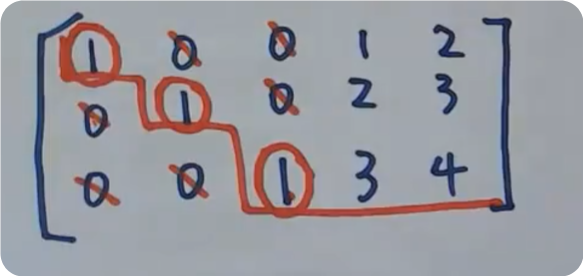 1 0 0 1 2
0 1 0 2 3
0 0 1 3 4